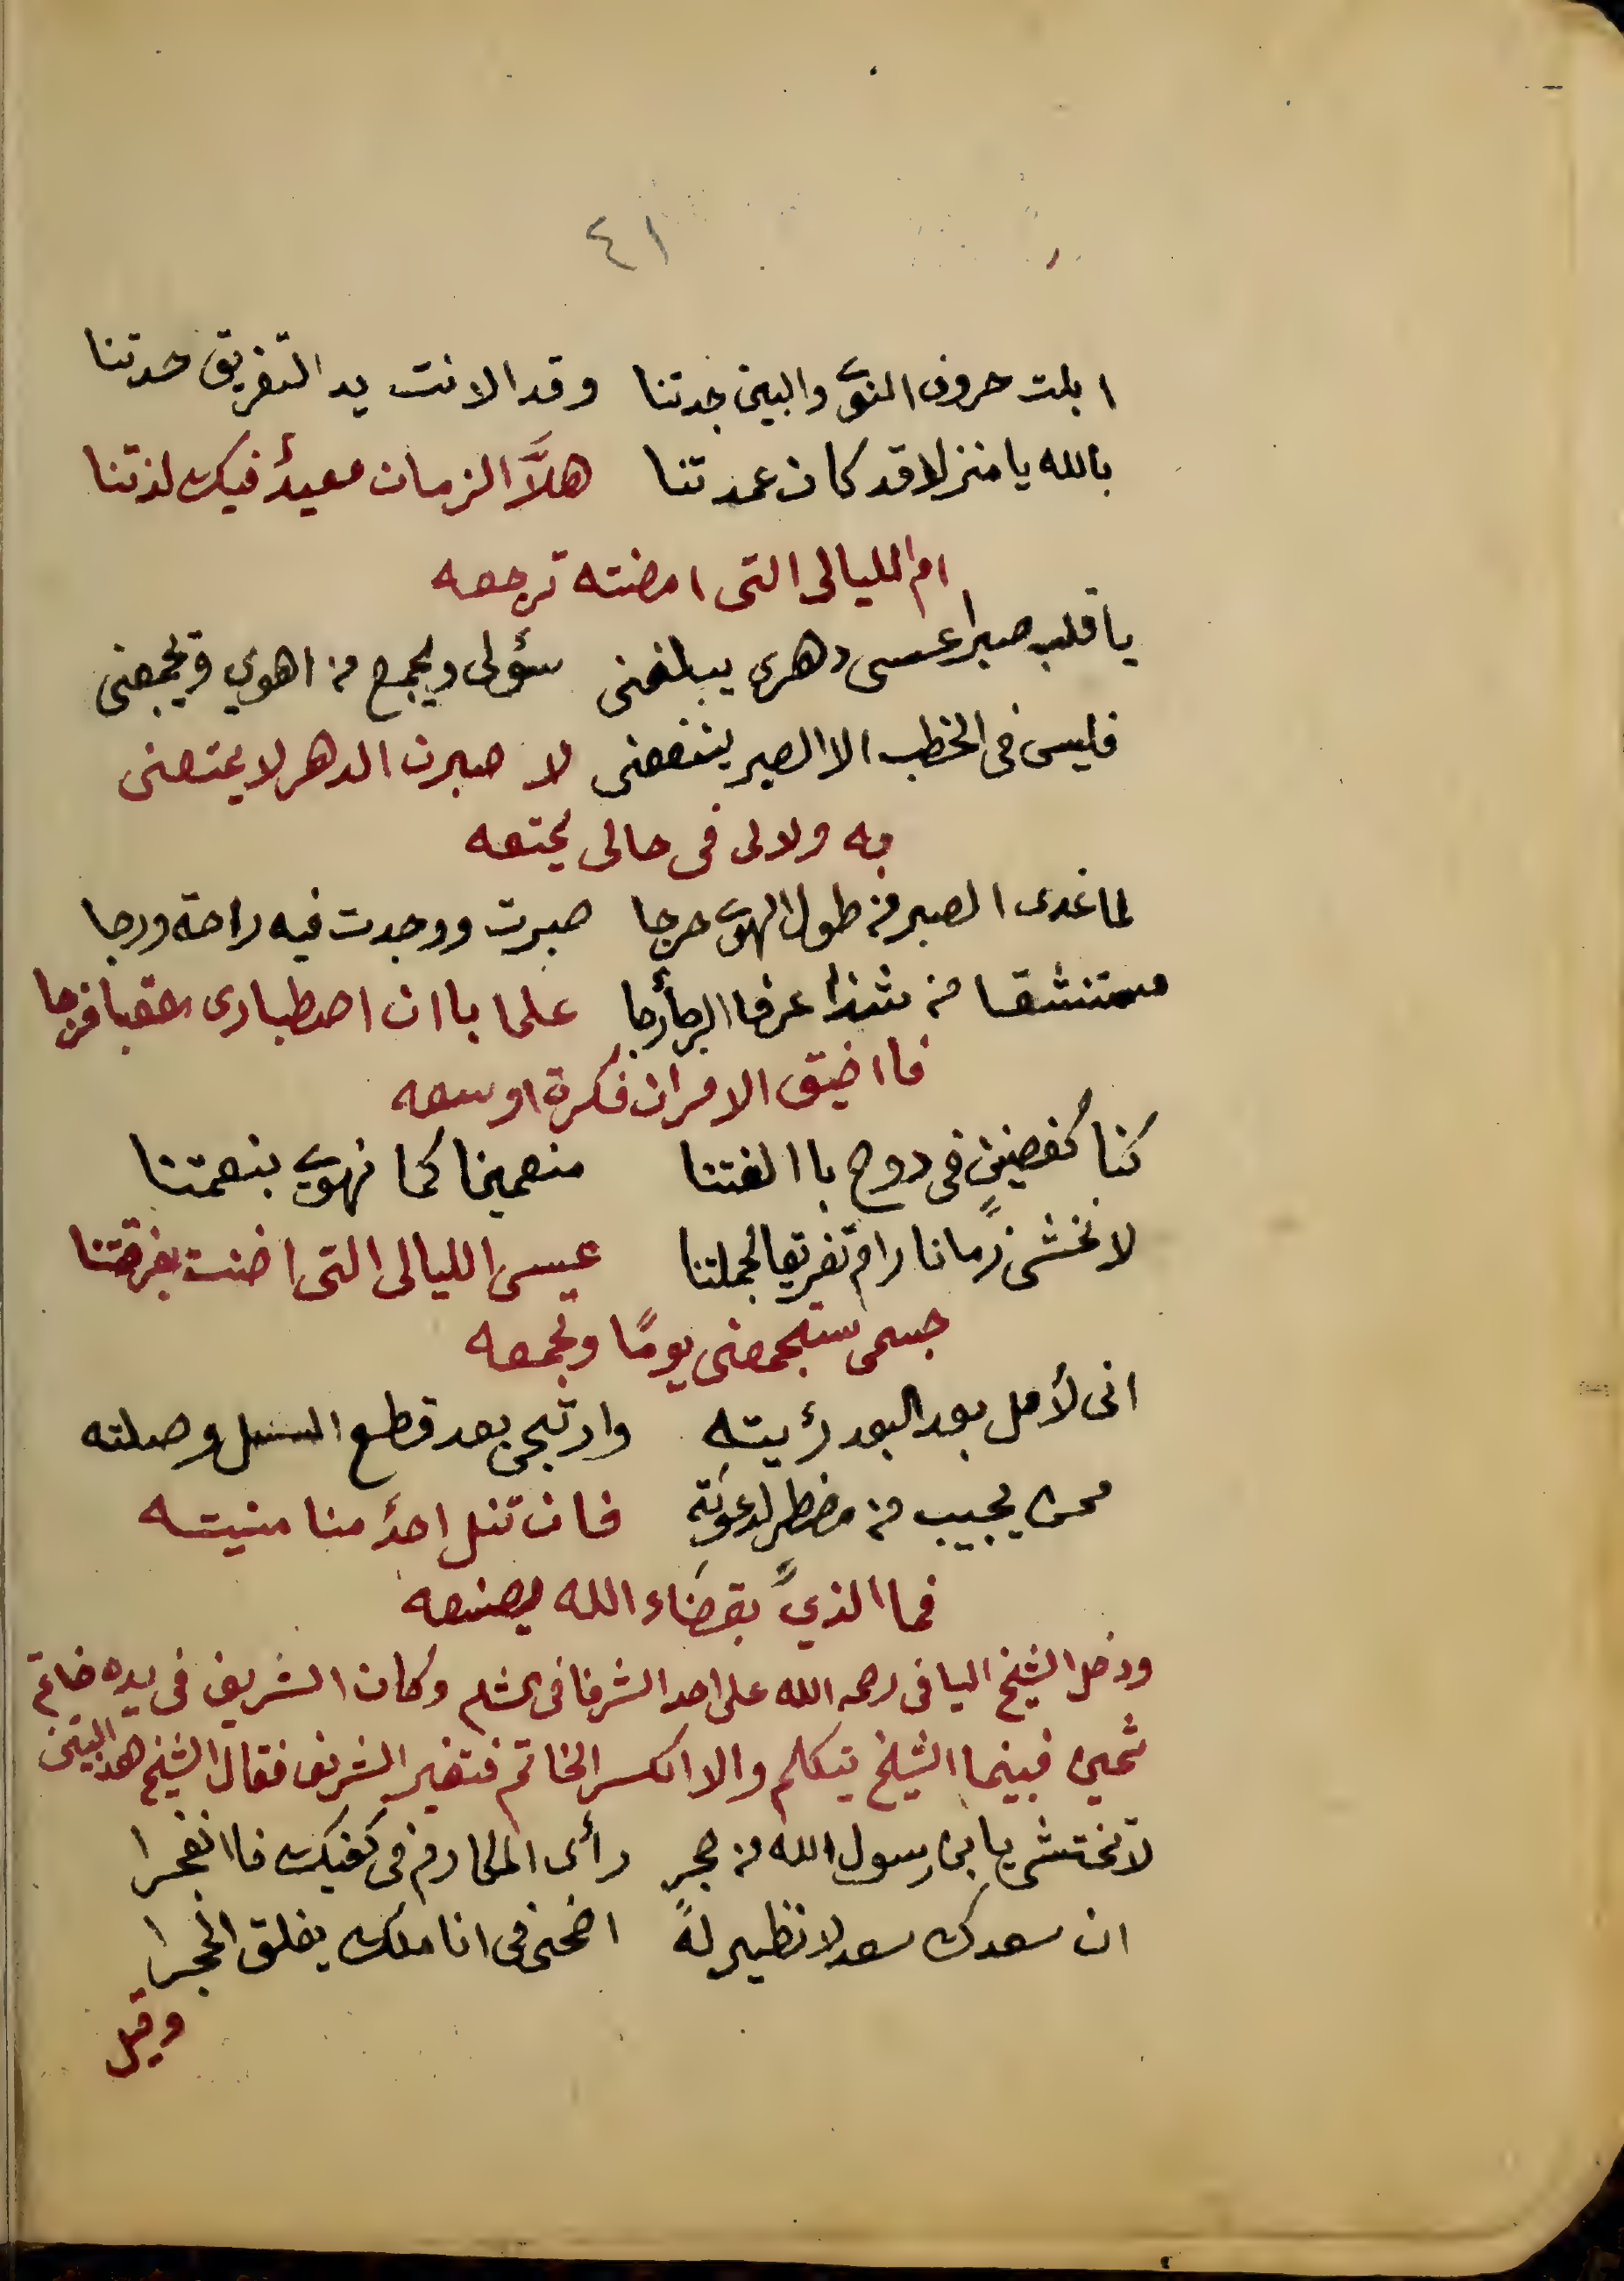 ٤١
ابلت حروف النوى والبين جدتنا وقد الانت يد التفريق حدتنا
بالله يا منزلا قد كان عمدتنا هلَّا الزمان معيدٌ فيك لذتنا
ام الليالى التى امضته ترجعه
يا قلب صبرا عسى دهرى يبلغنى سؤلى ويجمع من اهوي ويجمعنى
فليس فى الخطب الا الصبر ينفعنى لا صبرن الدهر لا يمتعنى
به ولا لى فى حالى يمتعه
لما غدى الصبر من طول الهوى حرجا صبرت ووجدت فيه راحة ورجا
مستنشقا من شذا عرفا الرجا أرجا علما باان اصطبارى عقبا فرجا
فا اضيق الامران فكرة اوسعه
كنا كغصنين فى دوح باالفتنا منعمينا كما نهوى بنعمتنا
لا نخشى زمانا رام تفريقا لجملتنا عسى الليالى التى اضنت بفرقتنا
جسمى ستجمعنى يومًا وتجمعه
انى لأمل بعد البعد رؤيته وارتجى بعد قطع وصلته
ممن يجيب من مضطر لدعوته فان تنل احدٌ منا منيته
فما الذي بقضاء الله يصنعه
ودخل الشيخ اليافى رحمه الله على احد الشرفا فى وكان الشريف فى يده خاتم
ثمين فبينما الشيخ يتكلم والا انكسر الخاتم فتغير الشريف فقال الشيخ هذ البيتن
لا تختشى يا بن رسول الله من حجر رأى المكارم فى كفيك فا انفجرا
ان سعدك سعد لا نظير لهً اضحى فى اناملك يفلق الحجرا
وقيل